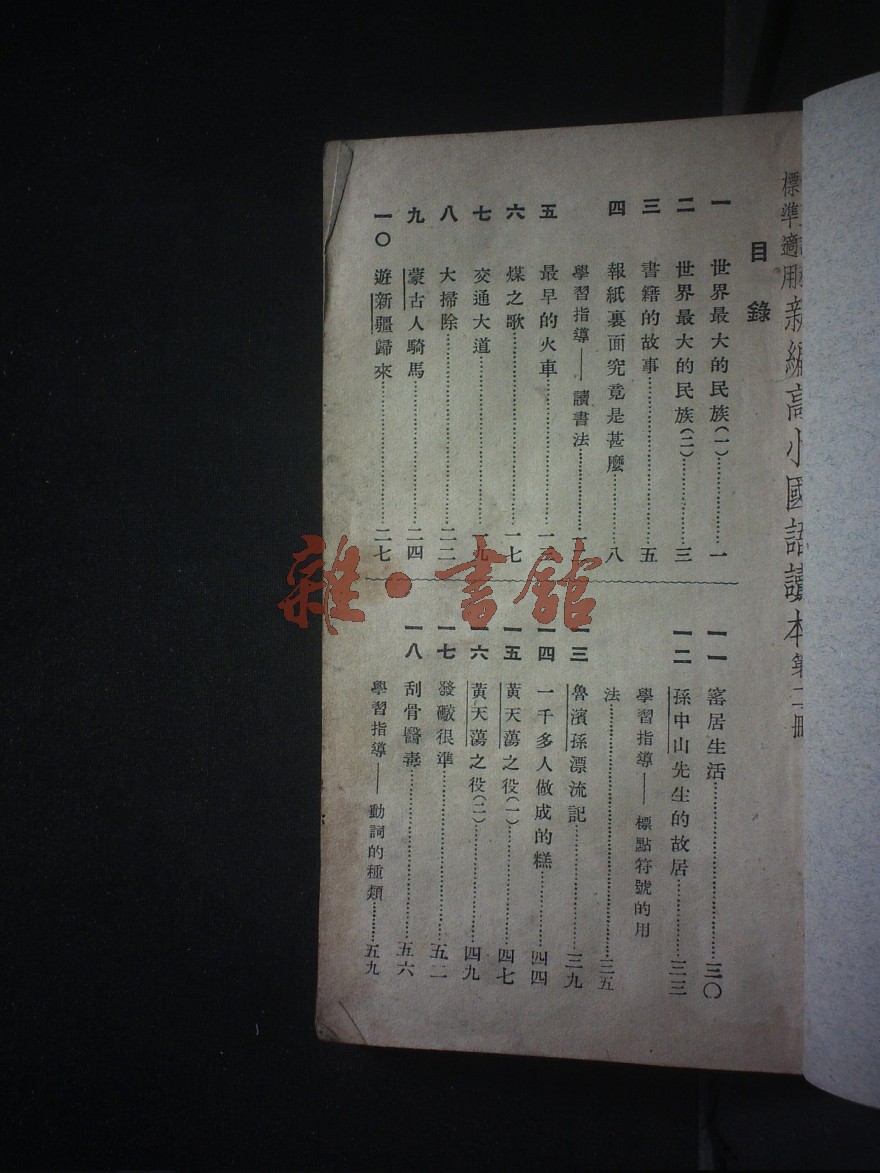 標準適用新編高小國語讀本第二冊
目錄
一 世界最大的民族(一)…………一
二 世界最大的民族(二)…………三
三 書籍的故事…………五
四 報紙裏面究竟是甚麼…………八
學習指導——讀書法…………
五 最早的火車…………
六 煤之歌…………一七
七 交通大道…………一九
八 大掃除…………二二
九 蒙古人騎馬…………二四
一〇 遊新疆歸來…………二七
一一 窰居生活…………三〇
一二 孫中山先生的故居…………三三
學習指導——標點符號的用
法…………三五
一三 魯濱孫漂流記…………三九
一四 一千多人做成的糕…………四四
一五 黃天蕩之役(一)…………四七
一六 黃天蕩之役(二)…………四九
一七 發礮很準…………五二
一八 刮骨醫毒…………五六
學習指導——動詞的種類…………五九
雜·書館